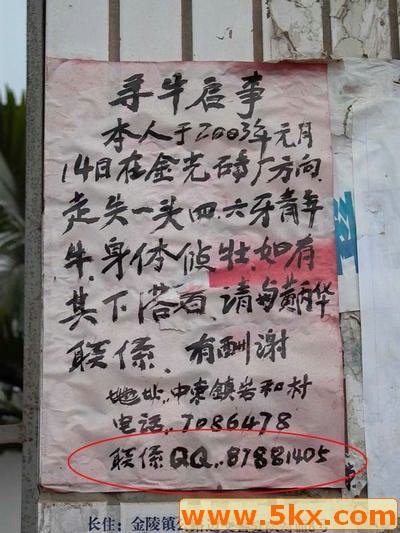 寻牛启事
本人于2003年元月
14日在金光砖厂方向
走失一头四.六牙青年
牛.身体侦壮.如有
其下落者.请与黄丙华
联係.有酬谢
地址..中东鎮岩和村
电话..7086478
联係QQ..87881405
www.5kx.com
长住:金陵镇